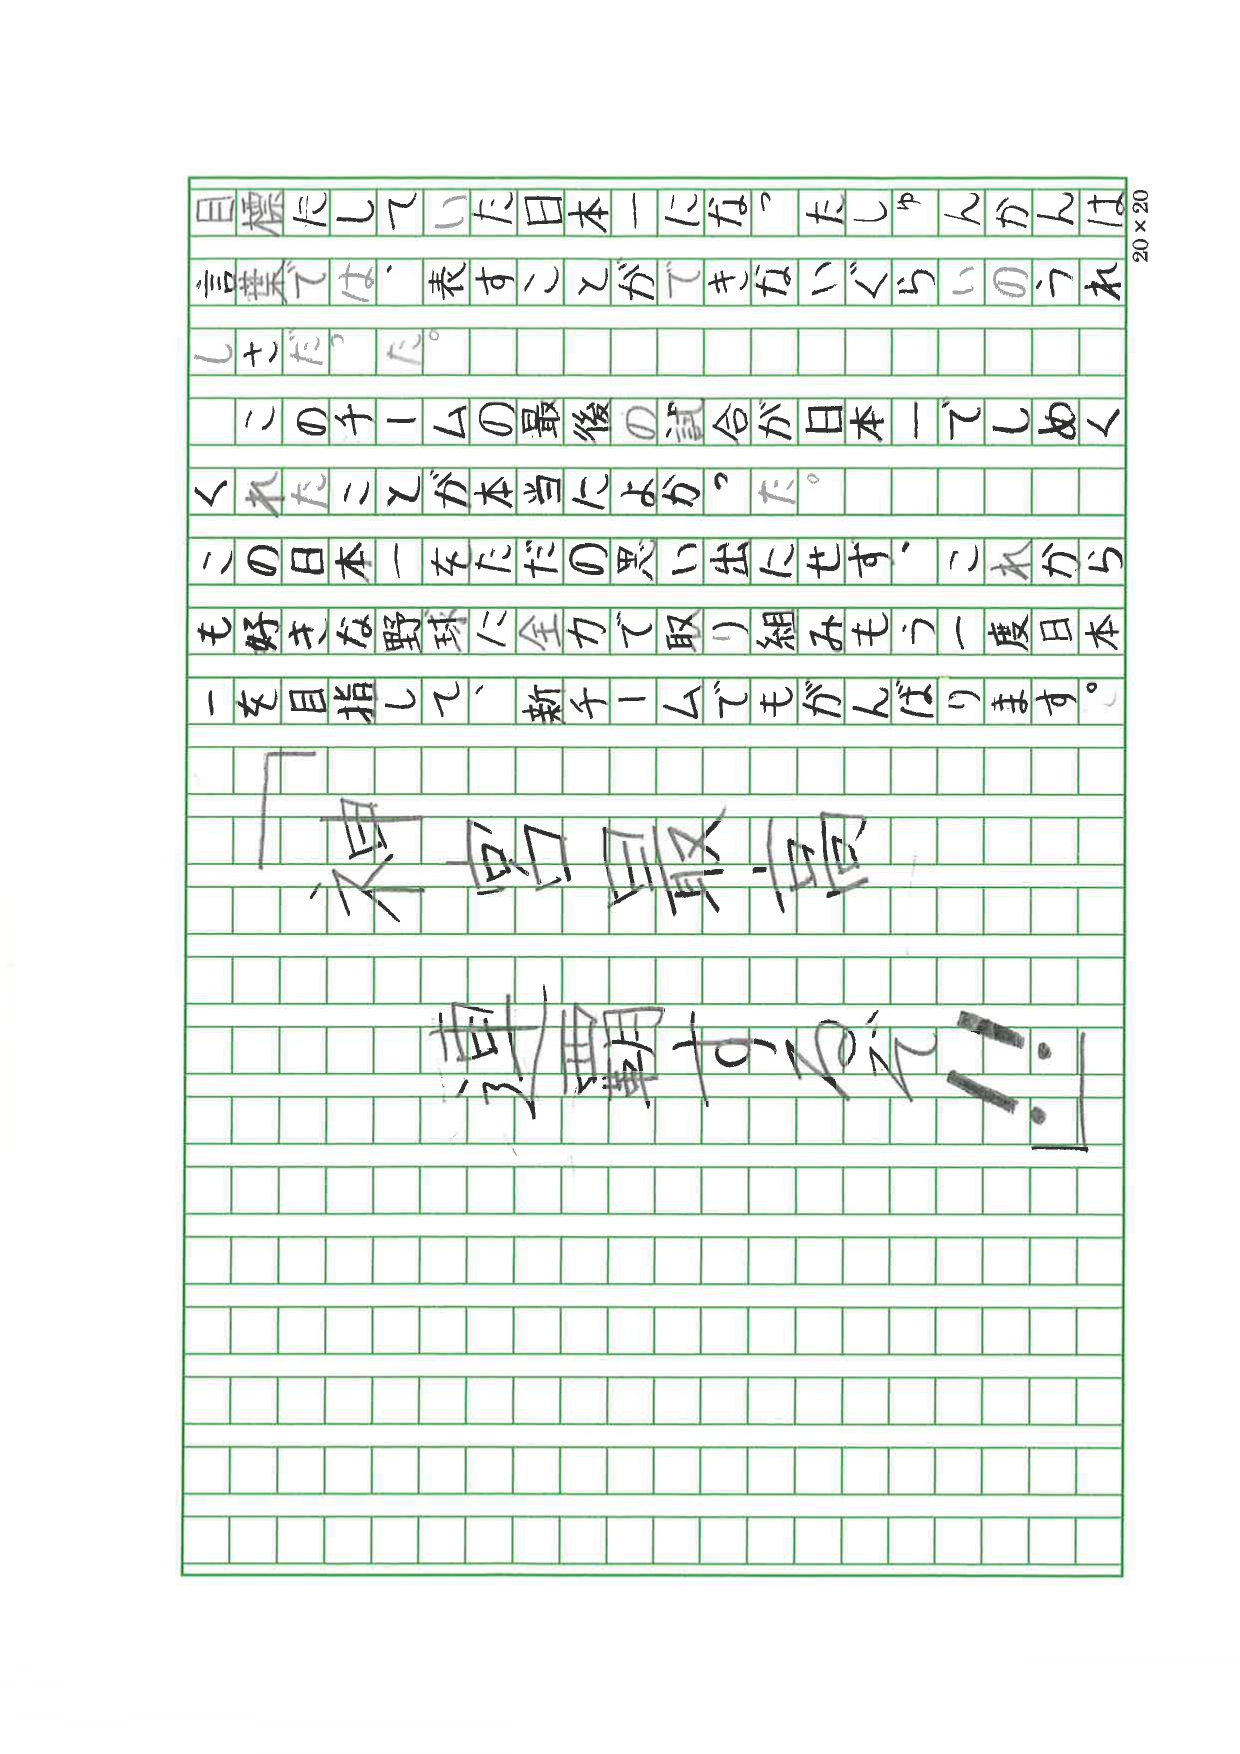 目標にしていた日本一になったしゅんかんは
言葉では、表すことができないぐらいのうれ
しさだった。
このチームの最後の試合が日本一でしめく
くれたことが本当によかった。
この日本一をただの思い出にせず、これから
も好きな野球に全力で取り組みもう一度日本
一を目指して、新チームでもがんばります。
「神宮最高
連覇するぞ!!」
20×20